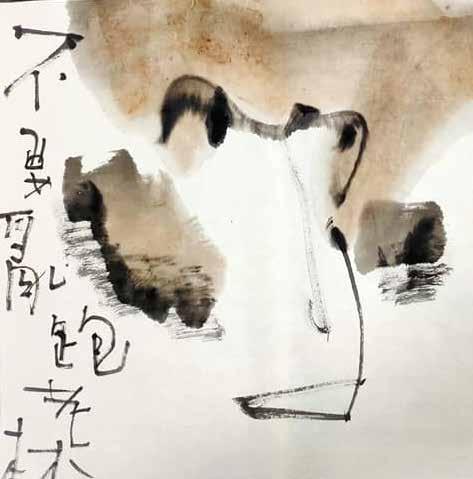 不要亂跑老林